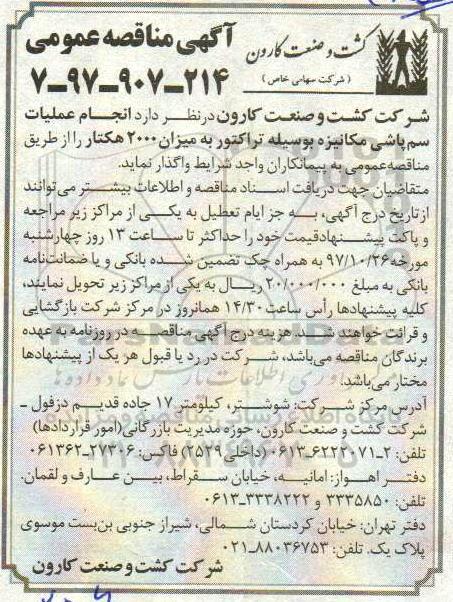 کشت و صنعت کارون
( شرکت سهامی خاص )
آگهی مناقصه عمومی
۷-۹۷-۹۰۷-۲۱۴
شرکت کشت و صنعت کارون در نظر دارد انجام عملیات
سم پاشی مکانیزه بوسیله تراکتور به میزان ۲۰۰۰ هکتار را از طریق
مناقصه عمومی به پیمانکاران واجد شرایط واگذار نماید.
متقاضیان جهت دریافت اسناد مناقصه و اطلاعات بیشتر می توانند
از تاریخ درج آگهی، به جز ایام تعطیل به یکی از مراکز زیر مراجعه
و پاکت پیشنهاد قیمت خود را حداکثر تا ساعت ۱۳ روز چهارشنبه
مورخه ۹۷/۱۰/۲۶ به همراه چک تضمین شده بانکی و یا ضمانت نامه
بانکی به مبلغ ۲۰/۰۰۰/۰۰۰ ریال به یکی از مراکز زیر تحویل نمایند،
کلیه پیشنهادها رأس ساعت ۱۴/۳۰ همانروز در مرکز شرکت بازگشایی
و قرائت خواهند شد. هزینه درج آگهی مناقصه در روزنامه به عهده
برندگان مناقصه می باشد، شرکت در رد یا قبول هر یک از پیشنهادها
مختار می باشد.
آدرس مرکز شرکت: شوشتر، کیلومتر ۱۷ جاده قدیم دزفول -
شرکت کشت و صنعت کارون، حوزه مدیریت بازرگانی (امور قراردادها)
تلفن: ۲-۶۲۲۲۰۷۱-۰۶۱۳ (داخلی ۲۵۲۹) فاکس: ۲۷۳۰۶-۰۶۱۳۶۲
دفتر اهواز: امانیه، خیابان سقراط، بین عارف و لقمان.
تلفن: ۳۳۳۵۸۵۰ و ۳۳۳۸۲۲۲-۰۶۱۳
دفتر تهران: خیابان کردستان شمالی، شیراز جنوبی بن بست موسوی
پلاک یک. تلفن: ۸۸۰۳۶۷۵۳-۰۲۱
شرکت کشت و صنعت کارون